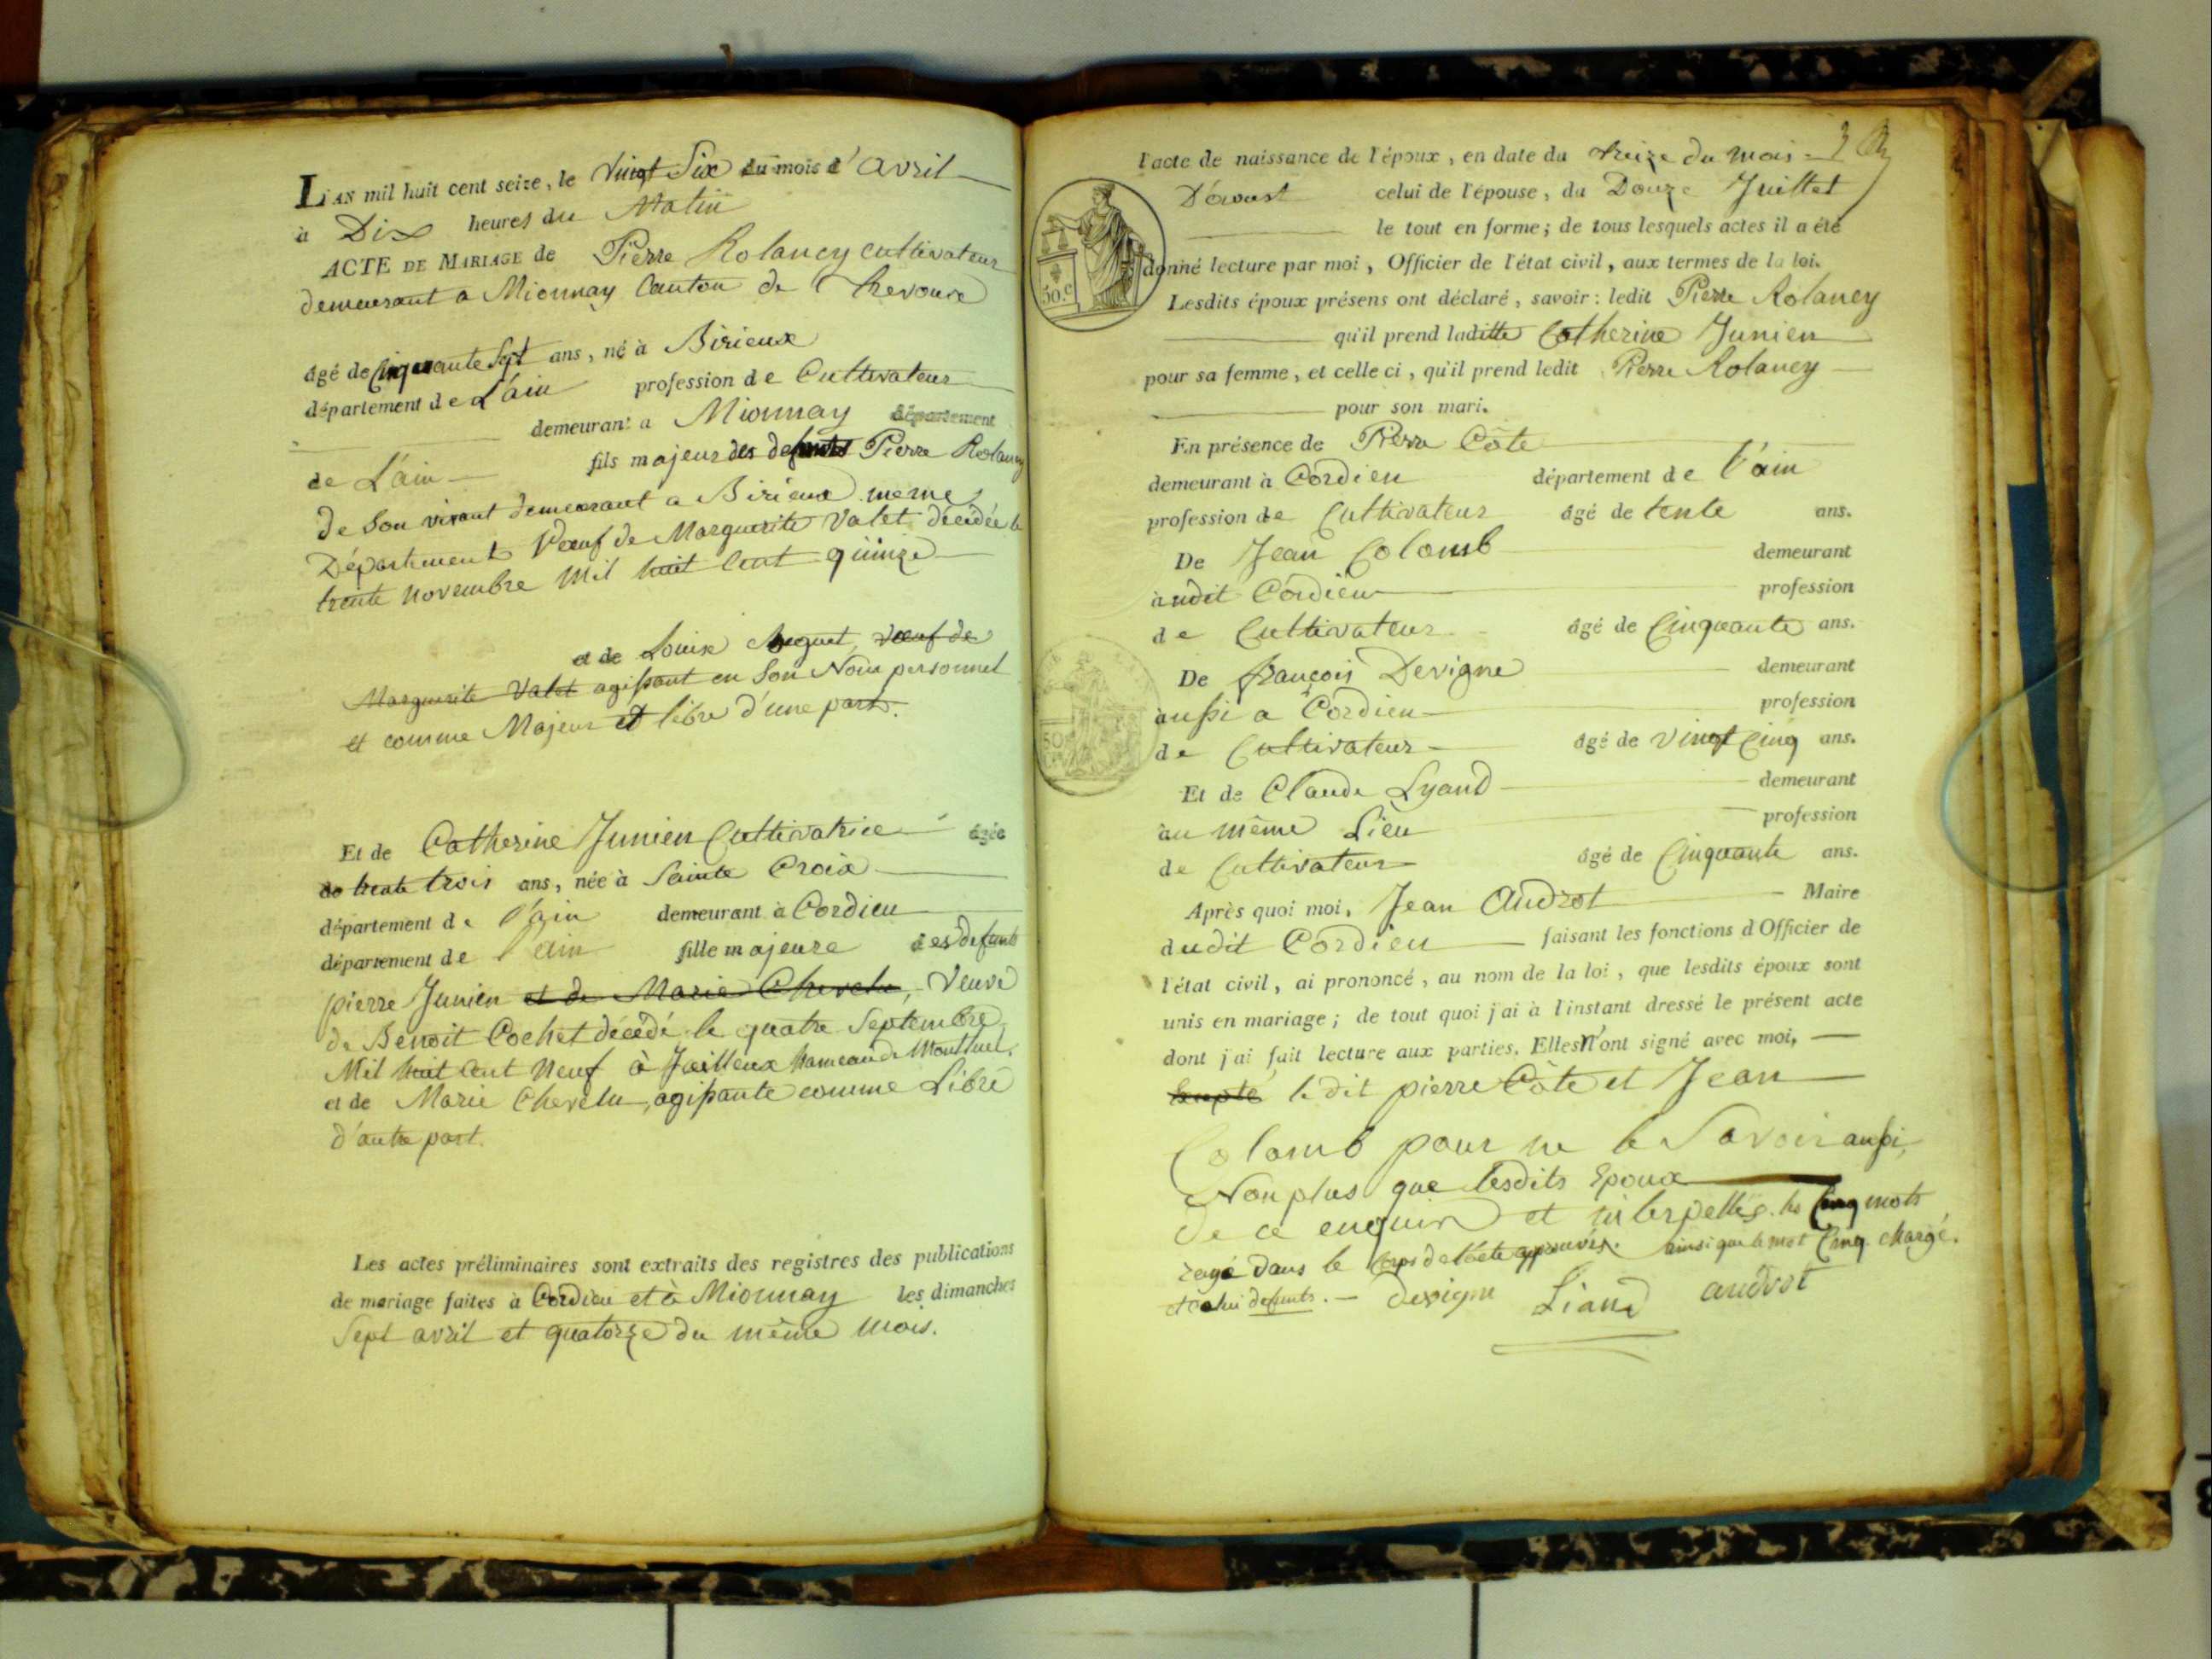 L'AN mil huit cent seize, le vingt Six du mois d'avril
à Dix heures du Matin
ACTE DE MARIAGE de Pierre Rolancy cultivateur
demeurant a Mionnay Canton de Trevoux
âgé de Cinquante Sept ans, né à Birieux
département de L'ain profession de Cultivateur
demeurant a Mionnay département
de L'ain fils majeur des defunts Pierre Rolancy
de Son vivant demeurant a Birieux meme
Département Veuf de Marguerite Valet décédée le
trente novembre mil huit Cent quinze
et de Louise Muguet, veuf de
Marguerite Valet agissant en Son Nom personnel
et comme Majeur et libre d'une part.
Et de Catherine Junien Cultivatrice âgée
de trente trois ans, née à Sainte Croix
département de l'ain demeurant à Cordieu
département de l'ain fille majeure des defunts
pierre Junien et de Marie Chevelu, Veuve
de Benoit Cochet décédé le quatre Septembre
Mil huit Cent Neuf à Jailleux hameau de Montluel.
et de Marie Chevelu, agissante comme Libre
d'autre part.
Les actes préliminaires sont extraits des registres des publications
de mariage faites à Cordieu et à Mionnay les dimanches
Sept avril et quatorze du même mois.
3
l'acte de naissance de l'époux, en date du treize du mois
D'aoust celui de l'épouse, du Douze Juillet
le tout en forme; de tous lesquels actes il a été
donné lecture par moi, Officier de l'état civil, aux termes de la loi.
50.c
Lesdits époux présens ont déclaré, savoir: ledit Pierre Rolancy
qu'il prend laditte Catherine Junien
pour sa femme, et celle ci, qu'il prend ledit Pierre Rolancy
pour son mari.
En présence de Pierre Côte
demeurant à Cordieu département de l'ain
profession de Cultivateur âgé de tente ans.
De Jean Colomb demeurant
audit Cordieu profession
de Cultivateur âgé de Cinquante ans.
De françois Devigne demeurant
aussi a Cordieu profession
de Cultivateur âgé de vingt Cinq ans.
Et de Claude Lyand demeurant
au même Lieu profession
de Cultivateur âgé de Cinquante ans.
Après quoi moi, Jean Audrot Maire
dudit Cordieu faisant les fonctions d'Officier de
l'état civil, ai prononcé, au nom de la loi, que lesdits époux sont
unis en mariage; de tout quoi j'ai à l'instant dressé le présent acte
dont j'ai fait lecture aux parties. Elles N'ont signé avec moi,
le dit pierre Côte et Jean
Colomb pour ne le Savoir aussi,
Non plus que lesdits Epoux
de ce enquis et interpellés. les Cinq mots
rayé dans le Corps de l'acte approuvés. ainsi que le mot Cinq chargé.
et celui defunts. devigne Liand audrot